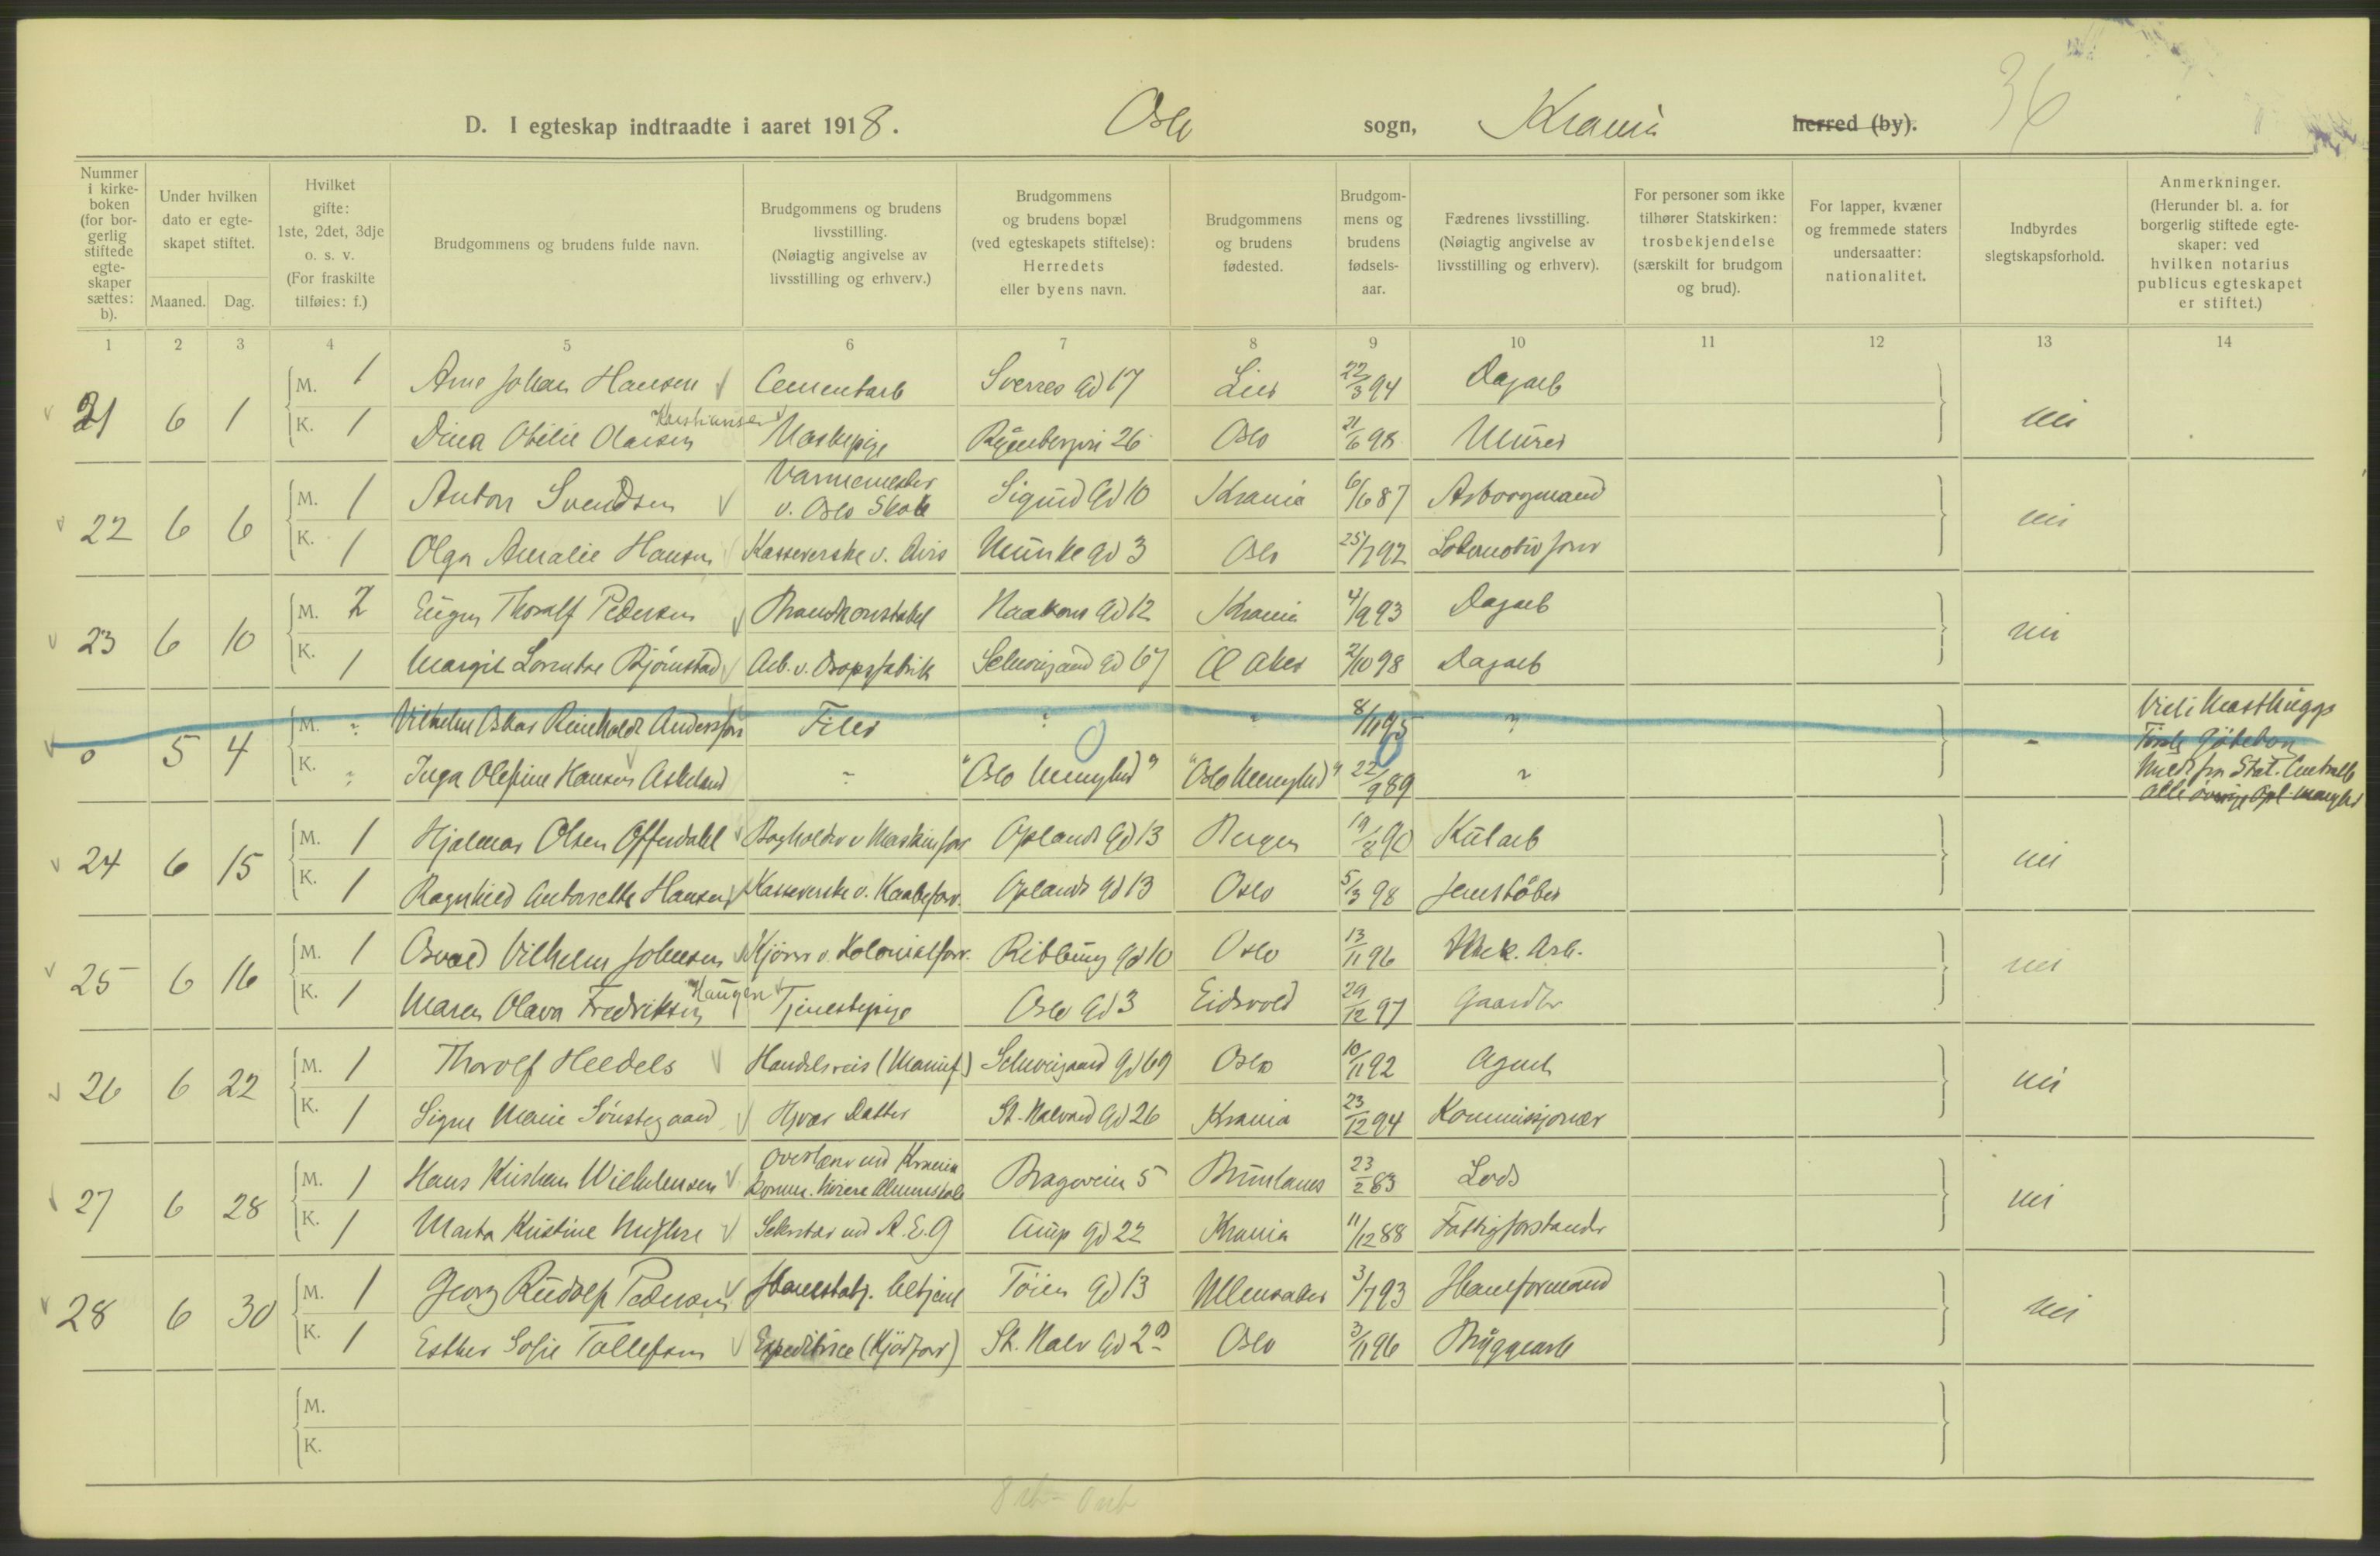 36
D. I egteskap indtraadte i aaret 1918. Oslo sogn, Krania herred (by).
Nummer i kirkeboken (for borgerlig stiftede egteskaper sættes: b).
Under hvilken dato er egteskapet stiftet.
Maaned. Dag.
Hvilket gifte: 1ste, 2det, 3dje o. s. v. (For fraskilte tilføies: f.)
Brudgommens og brudens fulde navn.
Brudgommens og brudens livsstilling. (Nøiagtig angivelse av livsstilling og erhverv.)
Brudgommens og brudens bopæl (ved egteskapets stiftelse): Herredets eller byens navn.
Brudgommens og brudens fødested.
Brudgommens og brudens fødselsaar.
Fædrenes livsstilling. (Nøiagtig angivelse av livsstilling og erhverv).
For personer som ikke tilhører Statskirken: trosbekjendelse (særskilt for brudgom og brud).
For lapper, kvæner og fremmede staters undersaatter: nationalitet.
Indbyrdes slegtskapsforhold.
Anmerkninger. (Herunder bl. a. for borgerlig stiftede egteskaper: ved hvilken notarius publicus egteskapet er stiftet.)
1 2 3 4 5 6 7 8 9 10 11 12 13 14
21 6 1 M. 1 Arne Johan Hansen Cementarb Sverres Gd 17 Lier 22/3 94 Dagarb nei
K. 1 Dina Otilie Olausen Kristiansen Oslo 21/6 98 Murer
22 6 6 M. 1 Anton Svendsen Varmemester v. Oslo Skole Sigurd Gd 10 Krania 6/6 87 Arborgmand nei
K. 1 Olga Amalie Hansen Kasserske v. Avis Munke gd 3 Oslo 25/7 92 Lokomotiv
23 6 10 M. 2 Eugen Thoralf Pedersen Brandkonstabel Haakons Gd 12 Krania 4/9 93 Dagarb nei
K. 1 Margit Lorentze Bjørnstad Arb. v. Schweigaard gd 67 Ø Aker 2/10 98 Dagarb
0 5 4 M. Vilhelm Oskar Reinholdt Andersson Filer 8/11 95
K. Inga Olefine Hansen Askeland "Oslo Menighed" "Oslo Menighed" 22/9 89
Viet i Masthuggs
Meldt fra Stat. Centralb
alle øvrige Opl. mangler
24 6 15 M. 1 Hjalmar Olsen Offerdahl Bogholder v Maskinforr Oplands Gd 13 Bergen 90 Kularb nei
K. 1 Ragnhild Antonette Hansen Kasserske v. Kaabeforr. Oplands gd 13 Oslo 5/3 98 Jernstøber
25 6 16 M. 1 Osvald Vilhelm Johnsen Kjører v. Kolonialforr. Ribbung gd 10 Oslo 13/11 96 Mek. Arb. nei
K. 1 Maren Olava Fredriksen Haugen Tjenestepige Oslo gd 3 Eidsvold 29/12 97 Gaardbr
26 6 22 M. 1 Thorolf Heedels Handelsreis (Manuf.) Schweigaard gd 69 Oslo 10/11 92 Agent nei
K. 1 Signe Marie Sønstegaard Hjvær Datter St. Halvard Gd 26 Krania 23/12 94 Kommissjonær
27 6 28 M. 1 Hans Kristian Wilhelmsen Overlærer ved Krania komm. høiere Almenskole Brageveien 5 Brunlanes 23/2 83 Lods nei
K. 1 Marta Kristine Sekretær ved A.E.G gd 22 Krania 11/12 88 Fattigforstander
28 6 30 M. 1 Georg Rudolf Pedersen betjent Tøien gd 13 Ullensaker 3/7 93 nei
K. 1 Esther Sofie Tollefsen Expeditrice St. Halv Gd Oslo 3/11 96 Bryggearb
M.
K.